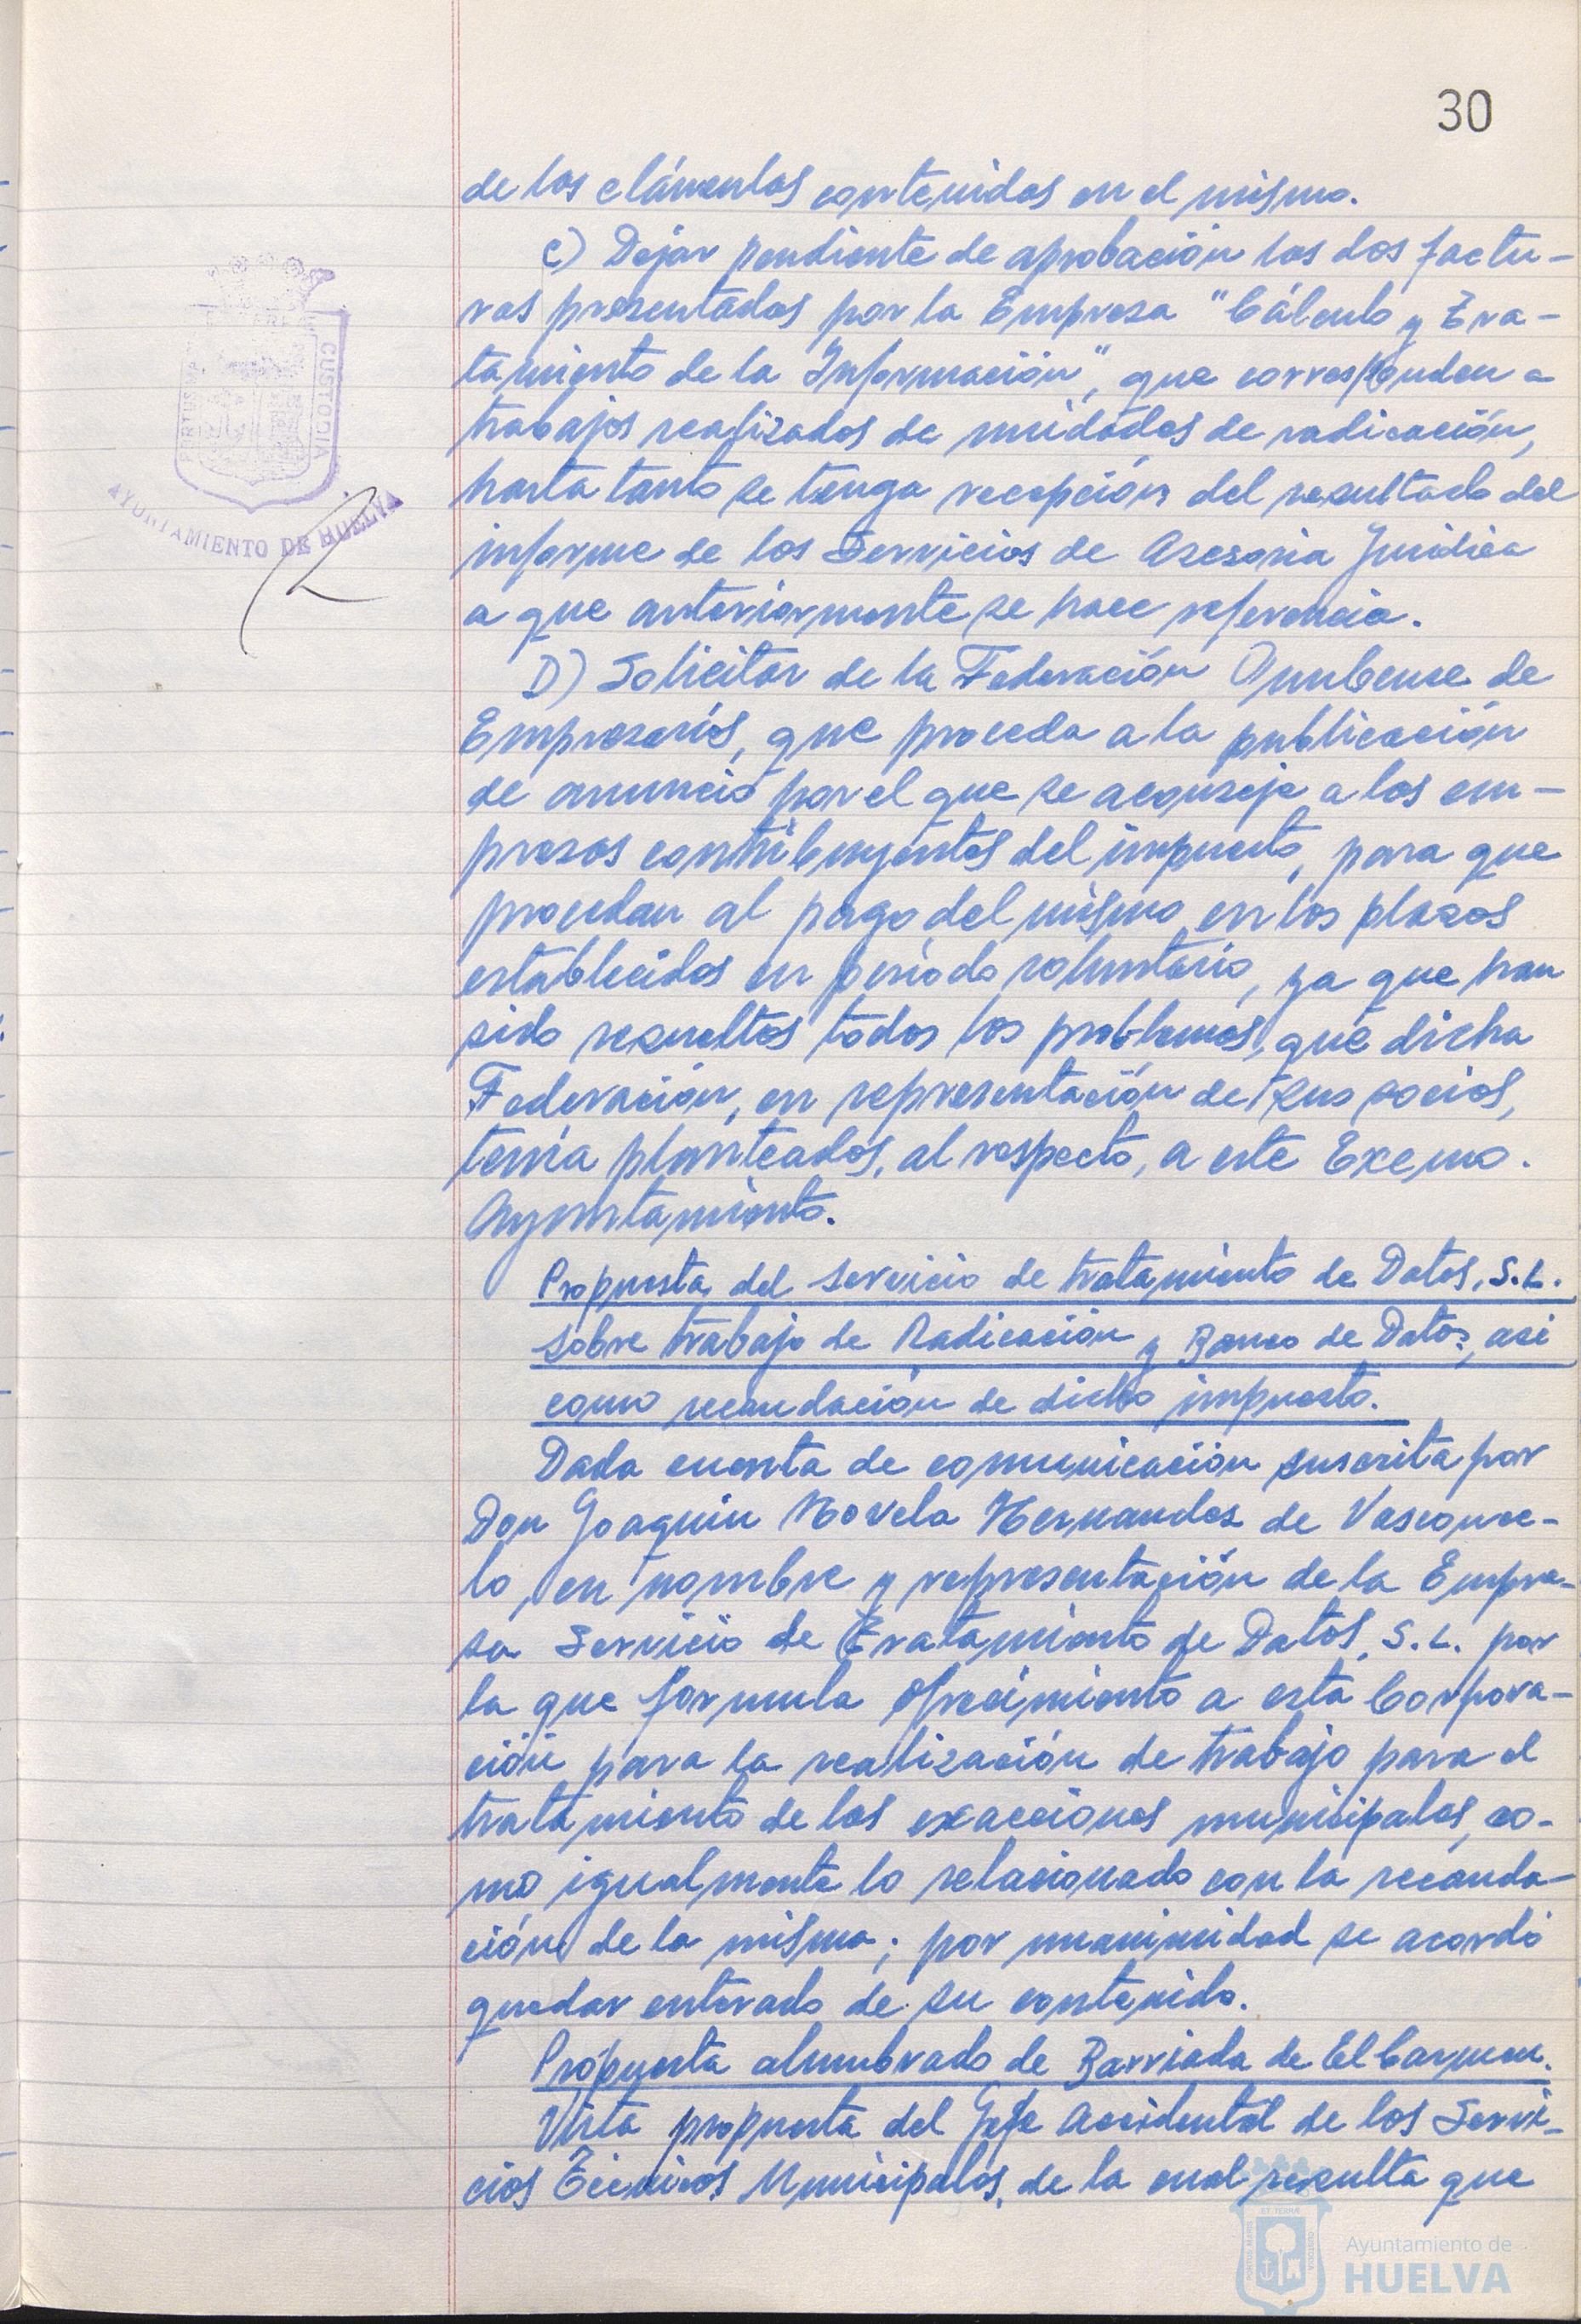 30
de las cláusulas contenidas en el mismo.
C) Dejar pendiente de aprobación las dos factu-
ras presentadas por la Empresa "Cálculo y Tra-
tamiento de la Información", que corresponden a
trabajos realizados de unidades de radicación,
hasta tanto se tenga recepción del resultado del
informe de los Servicios de Asesoria Juridica
a que anteriormente se hace referencia.
D) Solicitar de la Federación Onubense de
Empresarios, que proceda a la publicación
de anuncio por el que se aconseje a las em-
presas contribuyentes del impuesto, para que
procedan al pago del mismo en los plazos
establecidos en período voluntario, ya que han
sido resueltos todos los problemas, que dicha
Federación, en representación de sus socios,
tenía planteados, al respecto, a este Excmo.
Ayuntamiento.
Propuesta del servicio de tratamiento de Datos, S.L.
sobre trabajo de Radicación y Banco de Datos, asi
como recaudación de dicho impuesto.
Dada cuenta de comunicación suscrita por
Don Joaquin Novela Hernandez de Vasconce-
lo, en nombre y representación de la Empre-
sa Servicio de Tratamiento de Datos, S.L. por
la que formula ofrecimiento a esta Corpora-
ción para la realización de trabajo para el
tratamiento de las exacciones municipales, co-
mo igualmente lo relacionado con la recauda-
ción de la misma; por unanimidad se acordó
quedar enterado de su contenido.
Propuesta alumbrado de Barriada de El Carmen.
Vista propuesta del Jefe Accidental de los Servi-
cios Técnicos Municipales, de la cual resulta que
PORTUS MA
CUSTODIA
AYUNTAMIENTO DE HUELVA
Ayuntamiento de
HUELVA